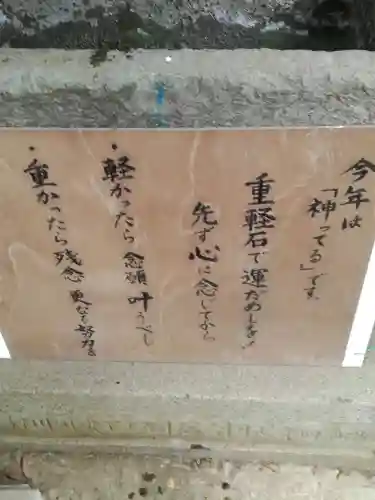 今年は
「神ってる」です
重軽石で運だめしを!
先ず心に念じてから
・軽かったら念願叶うべし
・重かったら残念更なる努力を